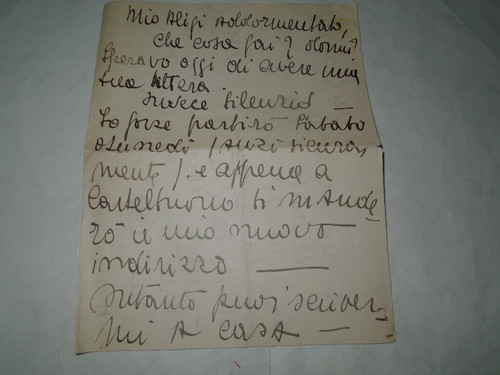 Mio Aligi Addormentato,
che cosa fai? dormi?
Speravo oggi di avere una
tua lettera.
Invece silenzio —
Io forse partirò Sabato
o Lunedì (anzi sicura
mente). e appena a
Castelbuono ti mande
rò il mio nuovo
indirizzo —
Intanto puoi scriver
mi a casa —